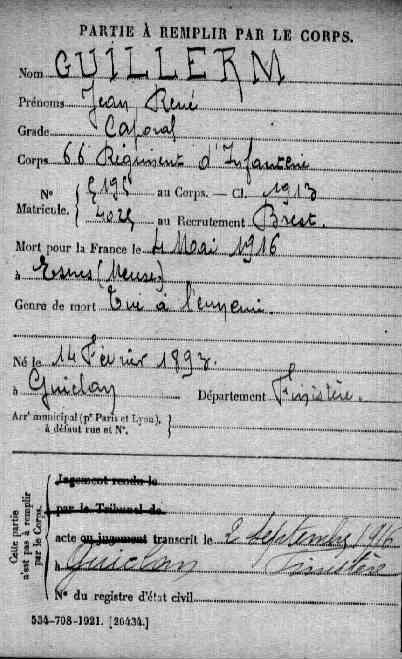 PARTIE À REMPLIR PAR LE CORPS.
Nom GUILLERM
Prénoms Jean René
Grade Caporal
Corps 66 Régiment d'Infanterie
N° Matricule. { au Corps. — Cl. 1913
au Recrutement Brest.
Mort pour la France le 4 Mai 1916
à Esnes (Meuse)
Genre de mort Tué à l'ennemi.
Né le 14 Février 1893.
à Guiclan Département Finistère.
Arr^t municipal (p^r Paris et Lyon), à défaut rue et N°. }
Cette partie n'est pas à remplir par le Corps.
Jugement rendu le
par le Tribunal de
acte ou jugement transcrit le 2 Septembre 1916
à Guiclan Finistère
N° du registre d'état civil
534-708-1921. [26434.]